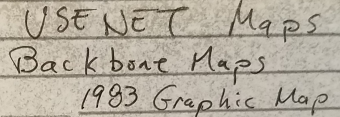 USENET Maps
Backbone Maps
1983 Graphic Map